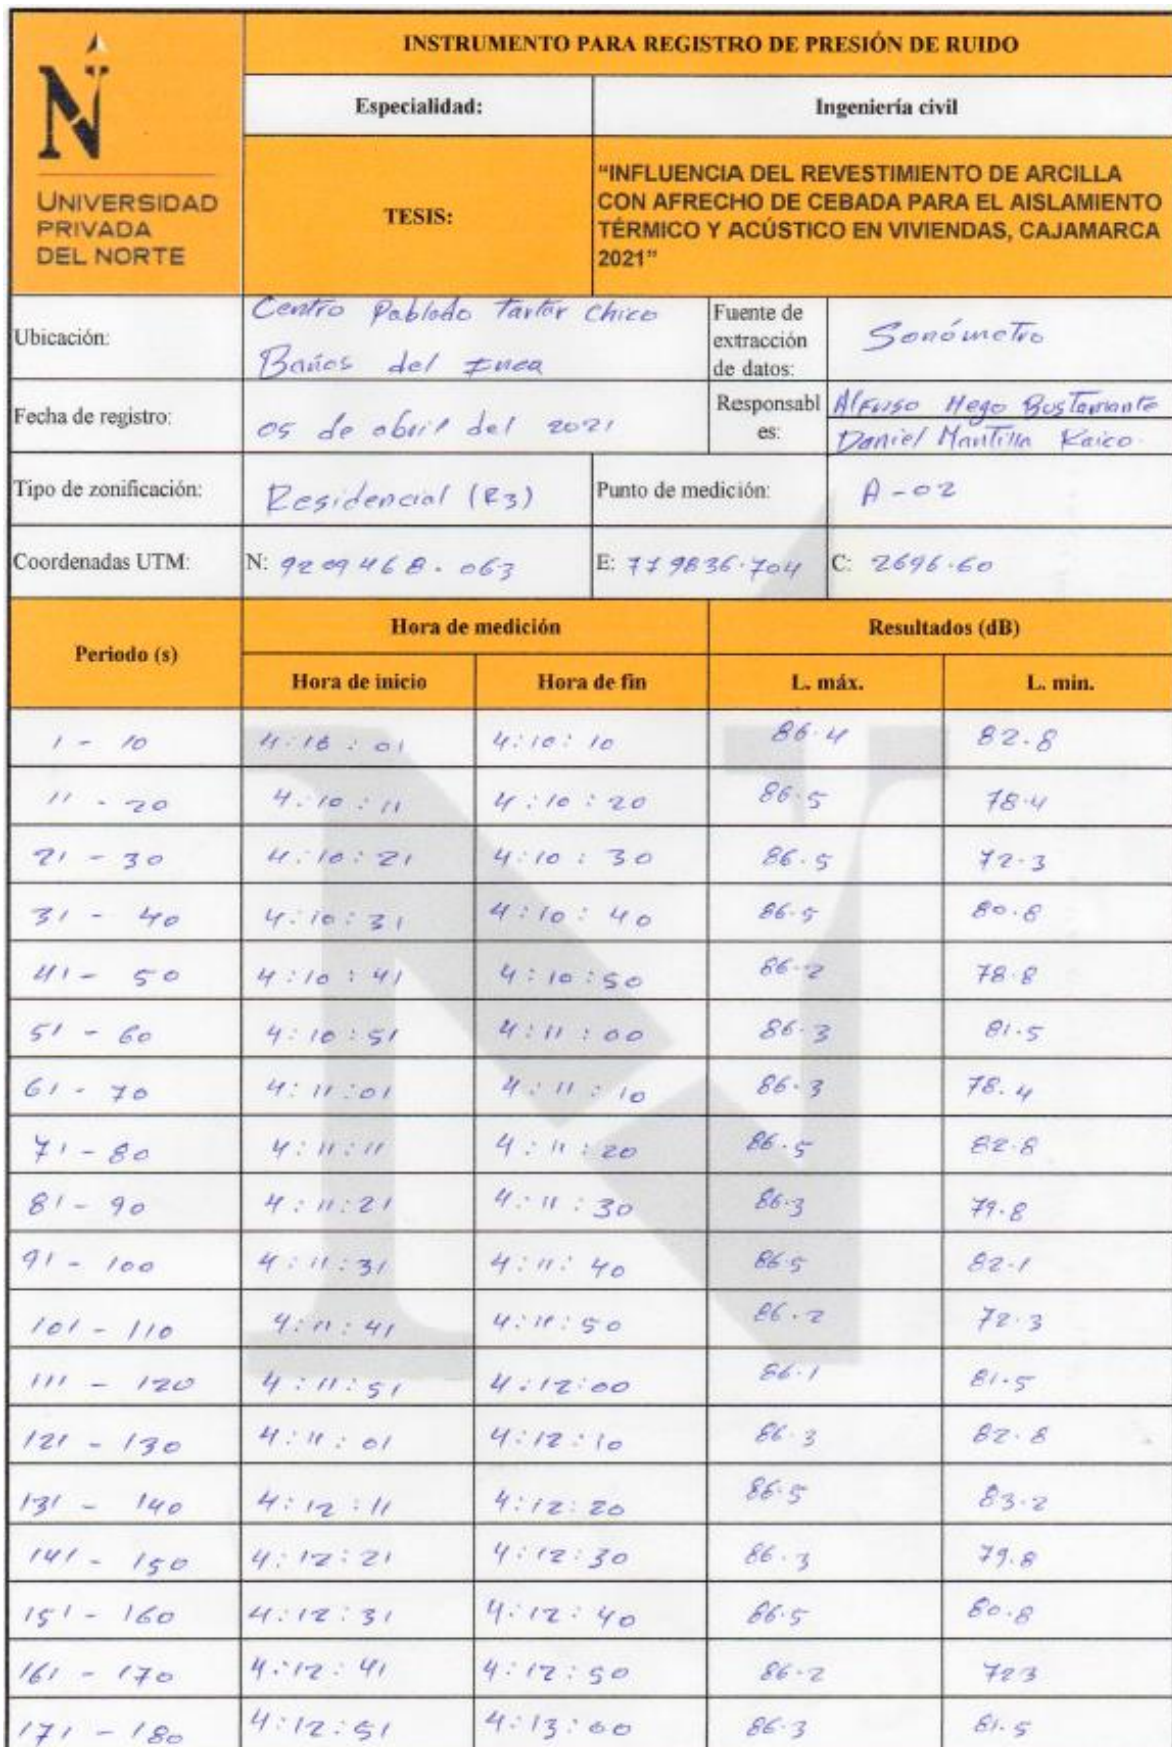 INSTRUMENTO PARA REGISTRO DE PRESIÓN DE RUIDO
N
UNIVERSIDAD
PRIVADA
DEL NORTE
Especialidad: Ingeniería civil
TESIS:
“INFLUENCIA DEL REVESTIMIENTO DE ARCILLA
CON AFRECHO DE CEBADA PARA EL AISLAMIENTO
TÉRMICO Y ACÚSTICO EN VIVIENDAS, CAJAMARCA
2021”
Ubicación:
Centro Poblado Tartar Chico
Baños del Inca
Fuente de
extracción
de datos:
Sonómetro
Fecha de registro: 05 de abril del 2021
Responsabl
es:
Alfonso Mego Bustamante
Daniel Mantilla
Tipo de zonificación: Residencial (R3) Punto de medición: A-02
Coordenadas UTM: N: 9209468.063 E: 779836.704 C: 2696.60
Periodo (s) Hora de medición Resultados (dB)
Hora de inicio Hora de fin L. máx. L. min.
1 - 10 4:10:01 4:10:10 86.4 82.8
11 - 20 4:10:11 4:10:20 86.5 78.4
21 - 30 4:10:21 4:10:30 86.5 72.3
31 - 40 4:10:31 4:10:40 86.5 80.8
41 - 50 4:10:41 4:10:50 86.2 78.8
51 - 60 4:10:51 4:11:00 86.3 81.5
61 - 70 4:11:01 4:11:10 86.3 78.4
71 - 80 4:11:11 4:11:20 86.5 82.8
81 - 90 4:11:21 4:11:30 86.3 79.8
91 - 100 4:11:31 4:11:40 86.5 82.1
101 - 110 4:11:41 4:11:50 86.2 72.3
111 - 120 4:11:51 4:12:00 86.1 81.5
121 - 130 4:11:01 4:12:10 86.3 82.8
131 - 140 4:12:11 4:12:20 86.5 83.2
141 - 150 4:12:21 4:12:30 86.3 79.8
151 - 160 4:12:31 4:12:40 86.5 80.8
161 - 170 4:12:41 4:12:50 86.2 723
171 - 180 4:12:51 4:13:00 86.3 81.5